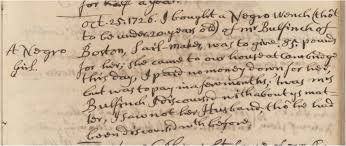 for half a year.
Oct. 25. 1726. I bought a Negro Wench (thôt
to be under 20 years old) of mr Bulfinch of
A Negro
Girl.
Boston, Sail-maker, was to give 85 pounds
for her; she came to our house at Cambridge
this day, I paid no money down for her,
but was to pay in a few months; twas mrs
Bulfinch I discoursed with about ys mat-
ter, I saw not her Husband, thô I had
been discoursed with before.